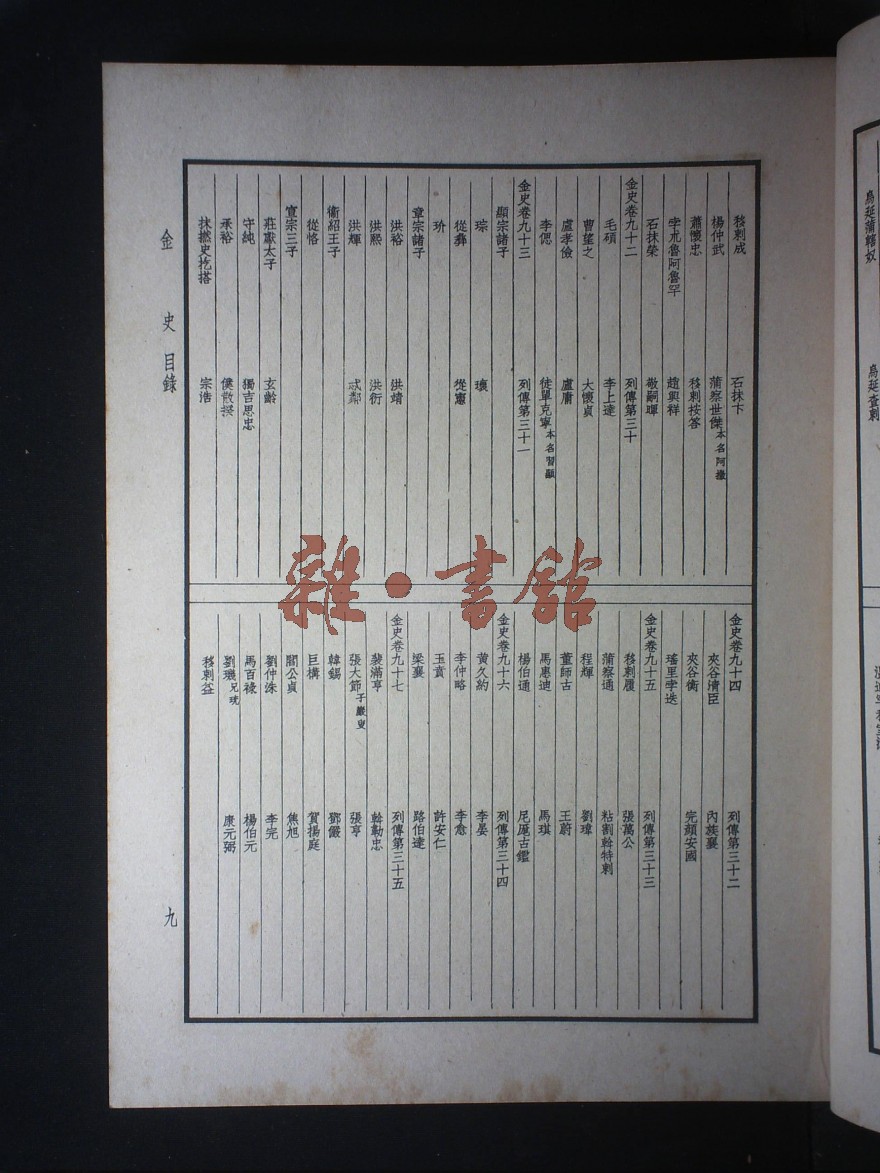 移剌成 石抹卞
楊仲武 蒲察世傑本名阿撒
蕭懷忠 移剌按答
孛朮魯阿魯罕 趙興祥
石抹榮 敬嗣暉
金史卷九十二 列傳第三十
毛碩 李上達
曹望之 大懷貞
盧孝儉 盧庸
李偲 徒單克寧本名習顯
金史卷九十三 列傳第三十一
顯宗諸子
琮 瓌
從彝 從憲
玠
章宗諸子
洪裕 洪靖
洪熙 洪衍
洪輝 忒鄰
衞紹王子
從恪
宣宗三子
莊獻太子 玄齡
守純 獨吉思忠
承裕 僕散揆
抹撚史扢搭 宗浩
金史卷九十四 列傳第三十二
夾谷清臣 內族襄
夾谷衡 完顏安國
瑤里孛迭
金史卷九十五 列傳第三十三
移剌履 張萬公
蒲察通 粘割斡特剌
程輝 劉瑋
董師古 王蔚
馬惠迪 馬琪
楊伯通 尼厖古鑑
金史卷九十六 列傳第三十四
黃久約 李晏
李仲略 李愈
王賁 許安仁
梁襄 路伯達
金史卷九十七 列傳第三十五
裴滿亨 斡勒忠
張大節子巖叟 張亨
韓錫 鄧儼
巨構 賀揚庭
閻公貞 焦旭
劉仲洙 李完
馬百祿 楊伯元
劉璣兄珫 康元弼
移剌益
金史目錄
九
烏延蒲轄奴 烏延查剌
雜·書館